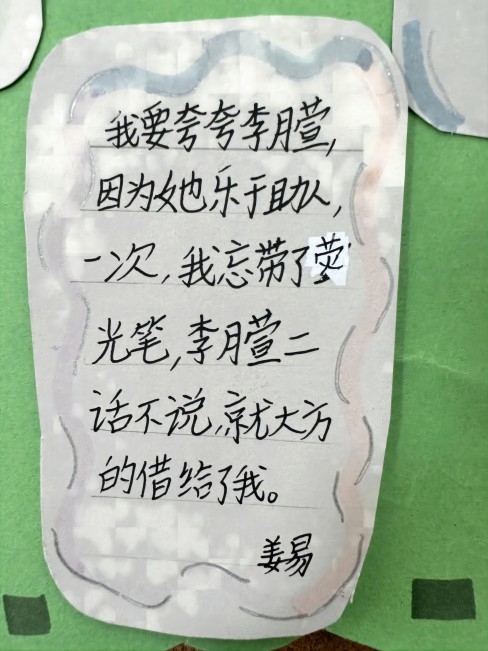 我要夸夸李月萱,
因为她乐于助人,
一次,我忘带了荧
光笔,李月萱二
话不说,就大方
的借给了我。
姜易